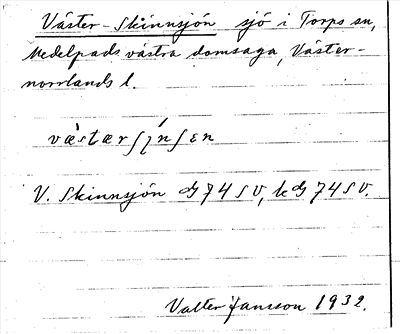 Väster-Skinnsjön sjö i Torps sn,
Medelpads västra domsaga, Väster-
norrlands l.
V. Skinnsjön G 74 SV, kG 74 SV.
Valter Jansson 1932.